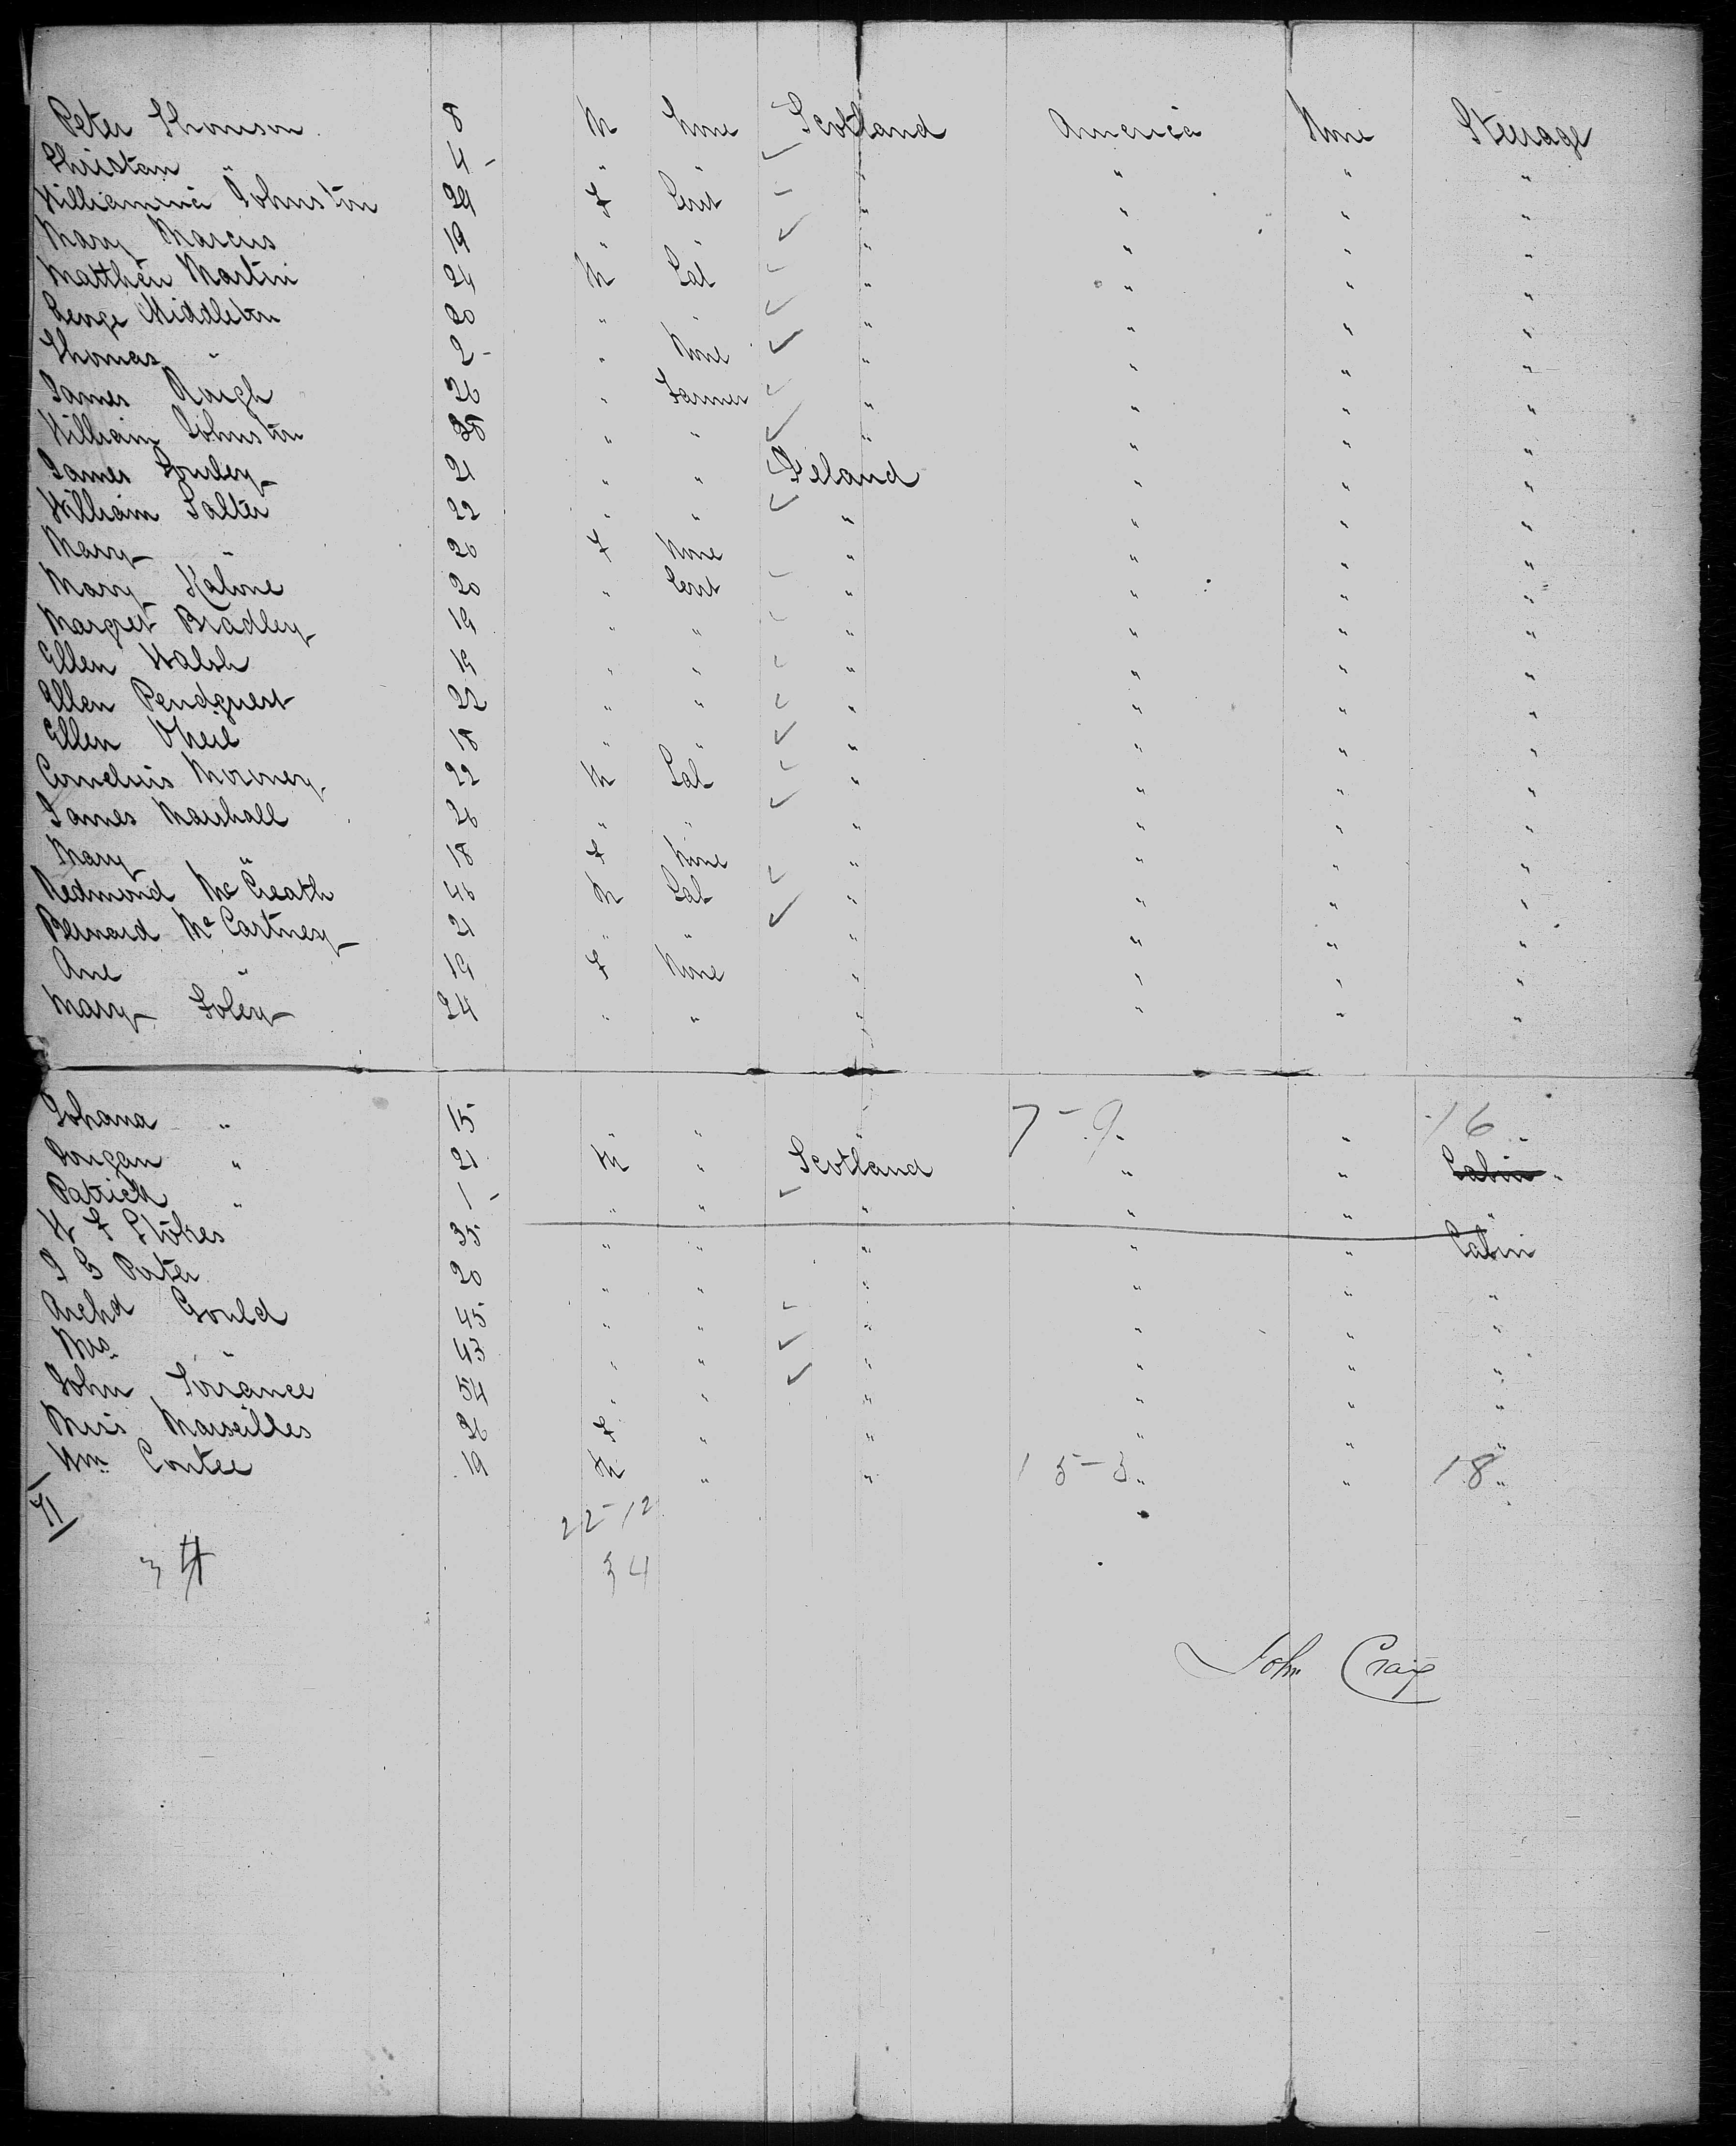 Peter Thomson 8 M None Scotland America None Steerage
Christan " 4 - " " " " " "
Williamina Johnston 24 F Sert " " " "
Mary Marcus 19 " " " " " "
Matthew Martin 24 M Lab " " " "
George Middleton 20 " " " " " "
Thomas " 2 - " None " " " "
James Haigh 26 " Farmer " " " "
William Johnston 38 " " " " " "
James 21 " " Ireland " " "
William Salter 22 " " " " " "
Mary " 20 F None " " " "
Mary 20 " Sert " " " "
Margret Bradley 19 " " " " " "
Ellen Walsh 19 " " " " " "
Ellen Pendgrest 22 " " " " " "
Ellen 18 " " " " " "
Cornelius 22 M Lab " " " "
James Marshall 26 " " " " " "
Mary " 18 F None " " " "
Redmond McCreath 46 M Lab " " " "
Bernard McCartney 21 " " " " " "
Ane " 19 F None " " " "
Mary Foley 24 " " " " " "
Johana " 15 " " " 7-9 " " 16 "
" 21 M " Scotland " " Cabin "
Patrick " 1 - " " " " " "
W F Stokes 35 " " " " " Cabin
J G Porter 20 " " " " " "
Archd Gould 45 " " " " " "
Mrs " 43 " " " " " "
John Torrance 54 " " " " " "
Miss Marseilles 26 F " " " " "
Wm Contee 19 M " " 15-3 " " 18 "
71
22 12
34
34
John Craig